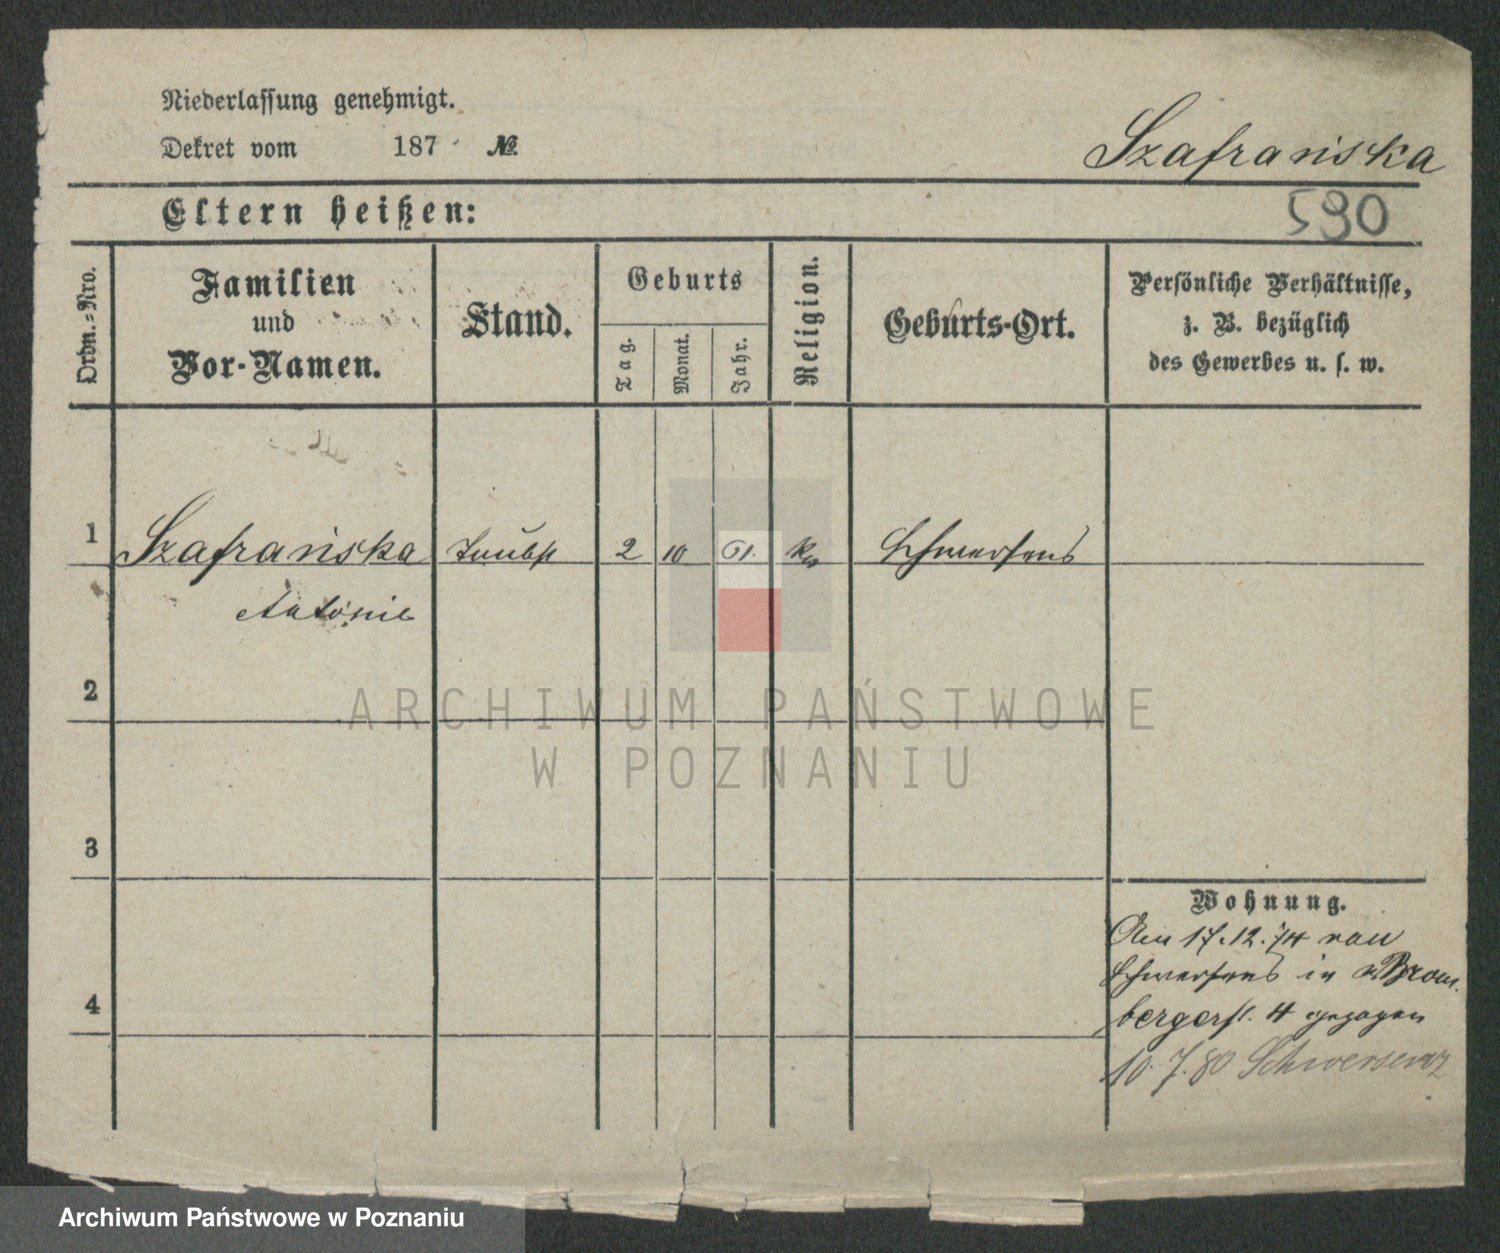 Niederlassung genehmigt.
Dekret vom 187 №.
Szafrańska
Eltern heißen:
590
Ordn.-Nro.
Familien
und
Vor-Namen.
Stand.
Geburts
Tag.
Monat.
Jahr.
Religion.
Geburts-Ort.
Persönliche Verhältnisse,
z. B. bezüglich
des Gewerbes u. s. w.
1 Szafrańska 2 10 61. Schwersenz
Antonie
2
ARCHIWUM PAŃSTWOWE
W POZNANIU
3
4
Wohnung.
Am 17.12.74 von
Schwersenz in Brom-
bergerst. 4 gezogen
10.7.80 Schwersenz
Archiwum Państwowe w Poznaniu